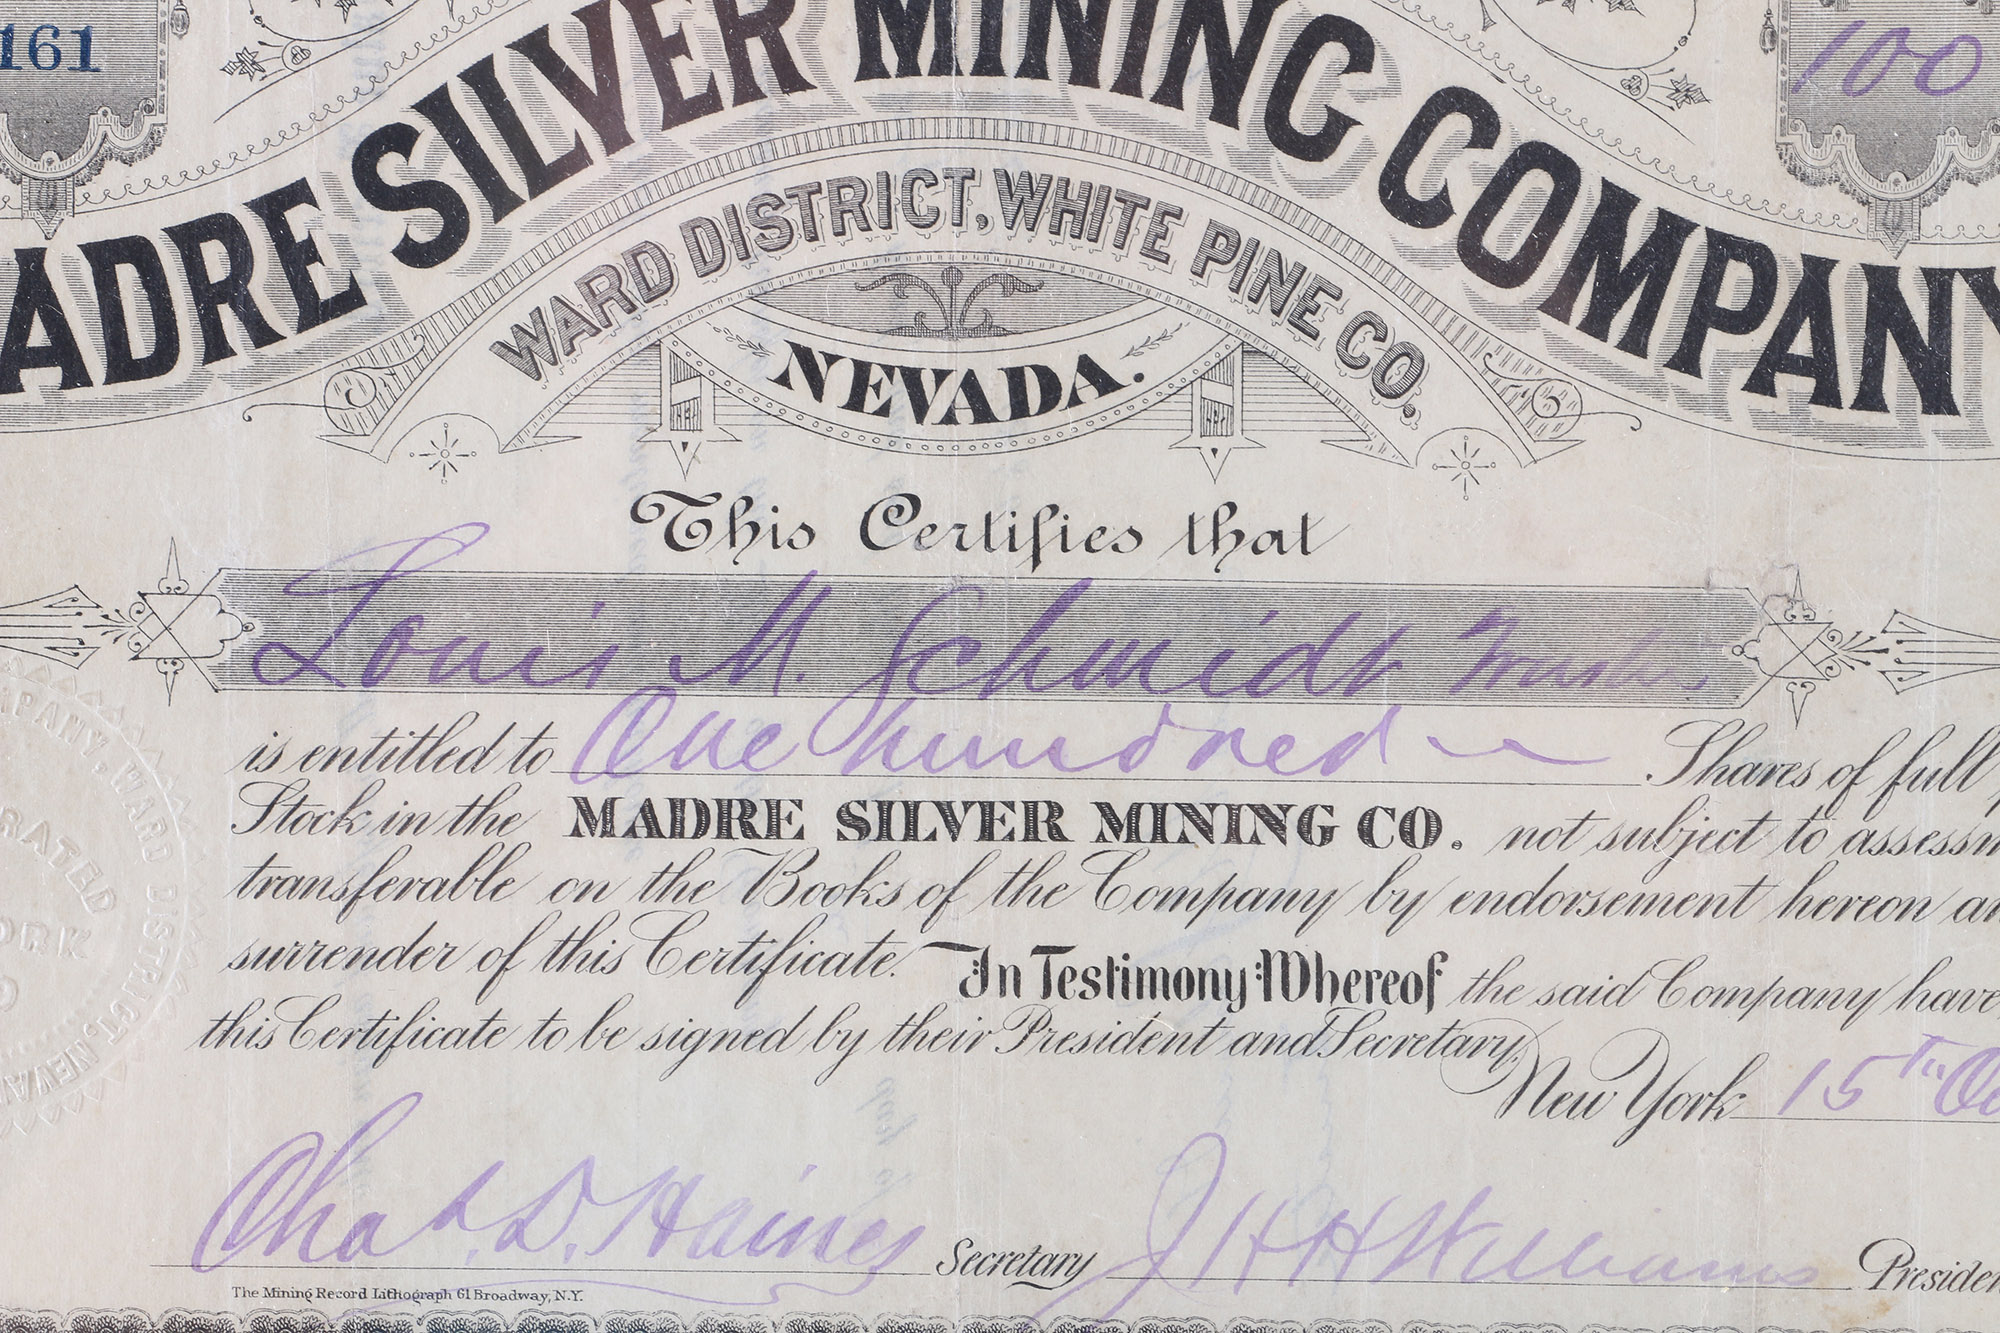 161
100
MADRE SILVER MINING COMPANY
WARD DISTRICT, WHITE PINE CO.
NEVADA.
This Certifies that
Louis M. Schmidt Trustee
is entitled to One hundred Shares of full
Stock in the MADRE SILVER MINING CO. not subject to assessm
transferable on the Books of the Company by endorsement hereon an
surrender of this Certificate. In Testimony Whereof the said Company have
this Certificate to be signed by their President and Secretary,
New York 15th Oc
Chas. D. Haines Secretary J H H Williams Presiden
The Mining Record Lithograph 61 Broadway, N.Y.
MPANY, WARD DISTRICT, NEVA
RATED
ORK